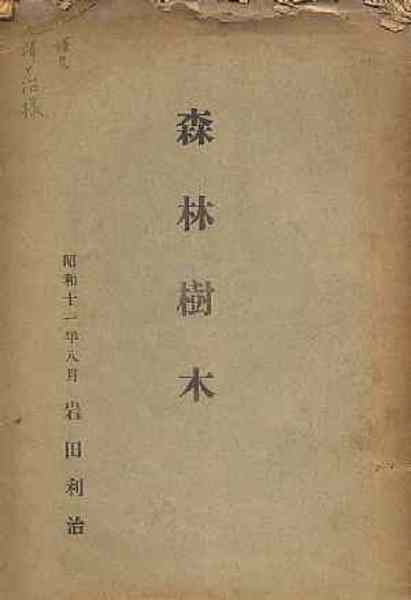 森林樹木
昭和十一年八月 岩田利治